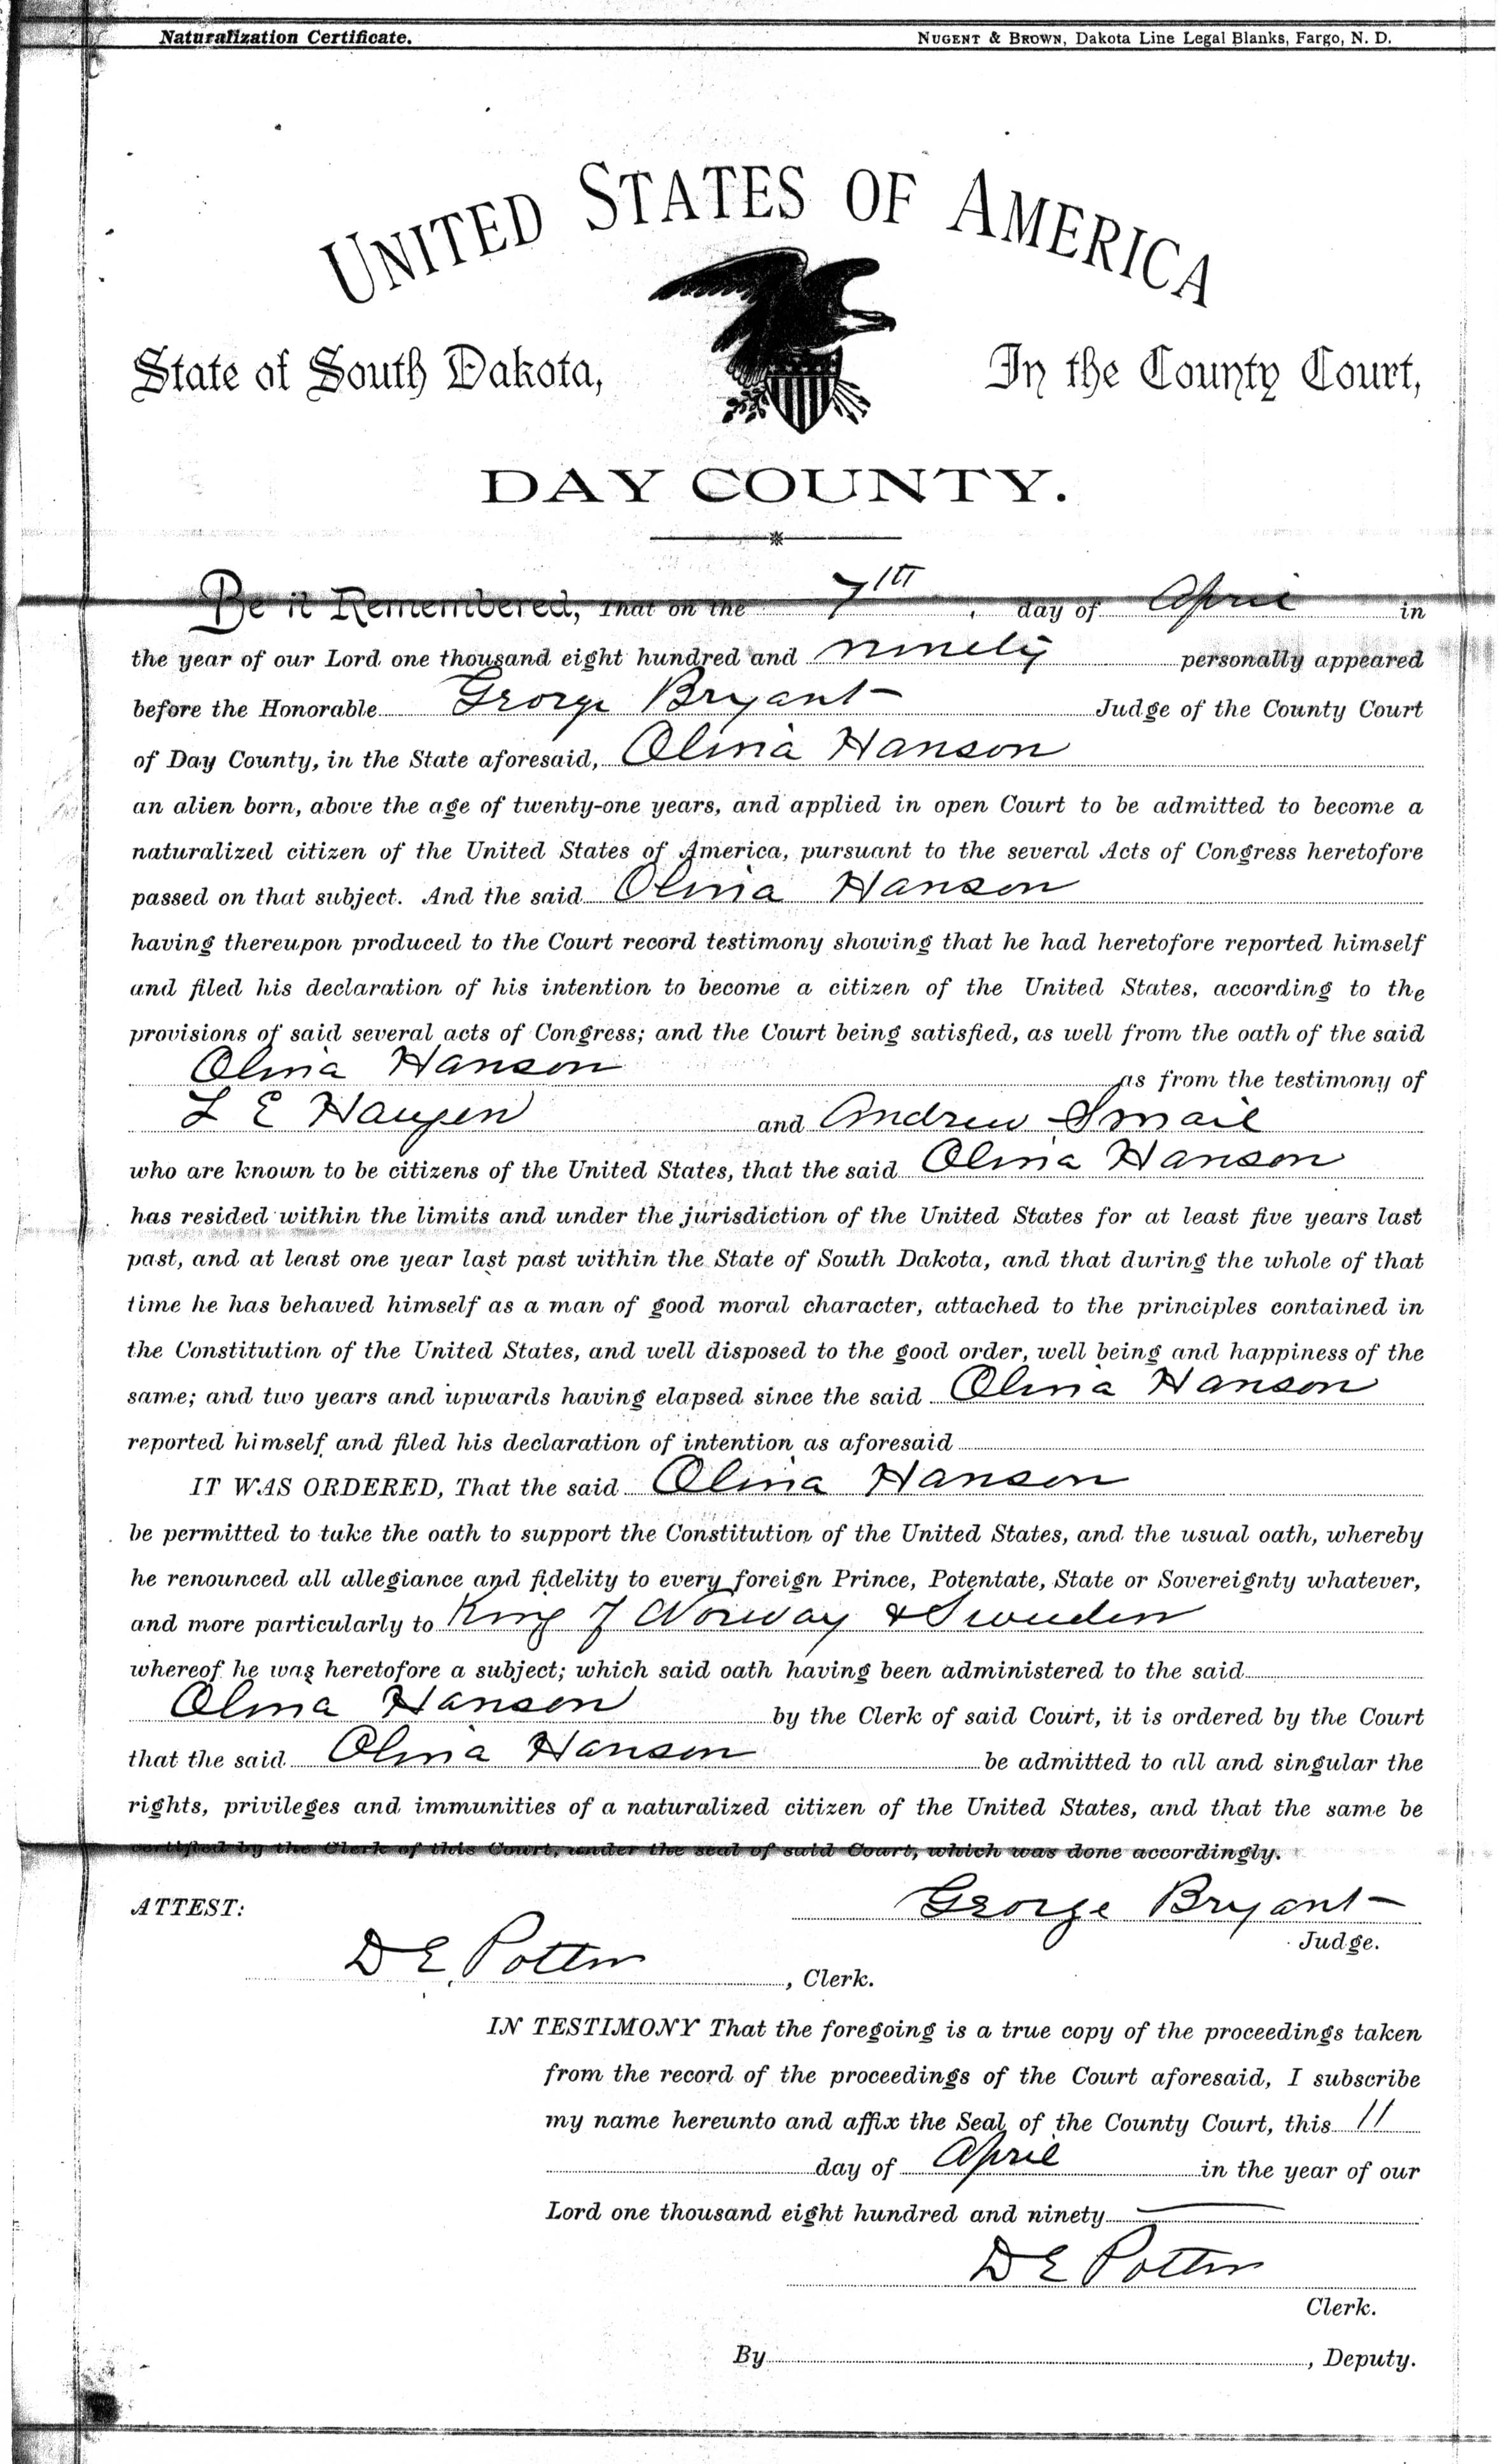 Naturalization Certificate. NUGENT & BROWN, Dakota Line Legal Blanks, Fargo, N. D.
UNITED STATES OF AMERICA
State of South Dakota, In the County Court,
DAY COUNTY.
Be it Remembered, That on the 7th day of April in
the year of our Lord one thousand eight hundred and ninety personally appeared
before the Honorable George Bryant Judge of the County Court
of Day County, in the State aforesaid, Olina Hanson
an alien born, above the age of twenty-one years, and applied in open Court to be admitted to become a
naturalized citizen of the United States of America, pursuant to the several Acts of Congress heretofore
passed on that subject. And the said Olina Hanson
having thereupon produced to the Court record testimony showing that he had heretofore reported himself
and filed his declaration of his intention to become a citizen of the United States, according to the
provisions of said several acts of Congress; and the Court being satisfied, as well from the oath of the said
Olina Hanson as from the testimony of
L E Haugen and Andrew Smail
who are known to be citizens of the United States, that the said Olina Hanson
has resided within the limits and under the jurisdiction of the United States for at least five years last
past, and at least one year last past within the State of South Dakota, and that during the whole of that
time he has behaved himself as a man of good moral character, attached to the principles contained in
the Constitution of the United States, and well disposed to the good order, well being and happiness of the
same; and two years and upwards having elapsed since the said Olina Hanson
reported himself and filed his declaration of intention as aforesaid
IT WAS ORDERED, That the said Olina Hanson
be permitted to take the oath to support the Constitution of the United States, and the usual oath, whereby
he renounced all allegiance and fidelity to every foreign Prince, Potentate, State or Sovereignty whatever,
and more particularly to King of Norway & Sweden
whereof he was heretofore a subject; which said oath having been administered to the said
Olina Hanson by the Clerk of said Court, it is ordered by the Court
that the said Olina Hanson be admitted to all and singular the
rights, privileges and immunities of a naturalized citizen of the United States, and that the same be
certified by the Clerk of this Court, under the seal of said Court, which was done accordingly.
ATTEST: George Bryant
Judge.
D E Potter, Clerk.
IN TESTIMONY That the foregoing is a true copy of the proceedings taken
from the record of the proceedings of the Court aforesaid, I subscribe
my name hereunto and affix the Seal of the County Court, this 11
day of April in the year of our
Lord one thousand eight hundred and ninety
D E Potter
Clerk.
By , Deputy.